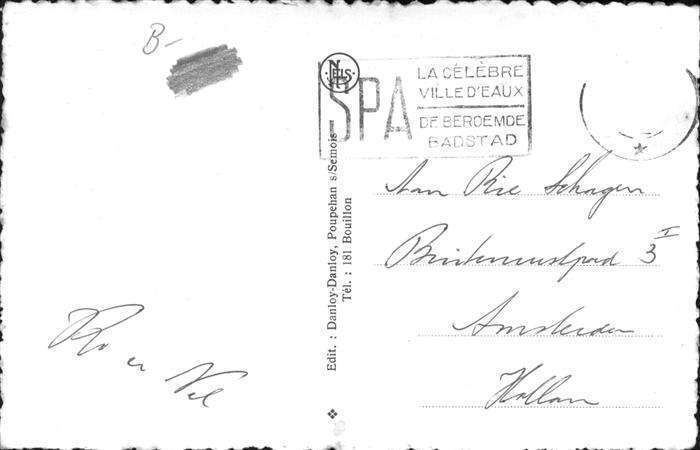 B-
NELS
SPA
LA CÉLÈBRE
VILLE D'EAUX
DE BEROEMDE
BADSTAD
Edit. : Danloy-Danloy, Poupehan s/Semois
Tél. : 181 Bouillon
Aan Rie Schagen
3 I
Amsterdam
Holland
en